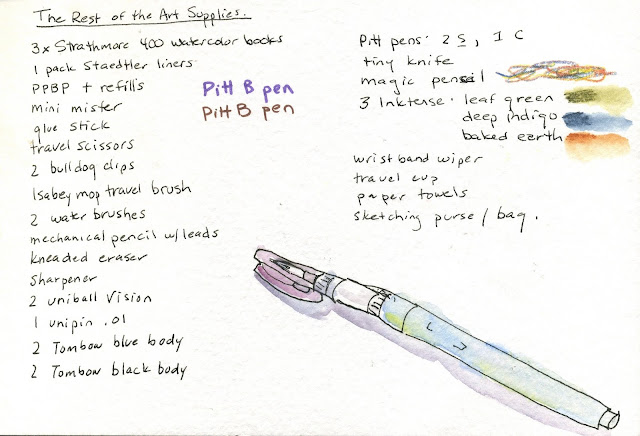 The Rest of the Art Supplies.
3x Strathmore 400 watercolor books
1 pack Staedtler liners
PPBP + refills
mini mister
glue stick
travel scissors
2 bulldog clips
Isabey mop travel brush
2 water brushes
mechanical pencil w/ leads
kneaded eraser
sharpener
2 uniball Vision
1 unipin .01
2 Tombow blue body
2 Tombow black body
Pitt B pen
Pitt B pen
Pitt pens: 2 S, 1 C
tiny knife
magic pencil
3 Inktense: leaf green
deep indigo
baked earth
wrist band wiper
travel cup
paper towels
sketching purse / bag.